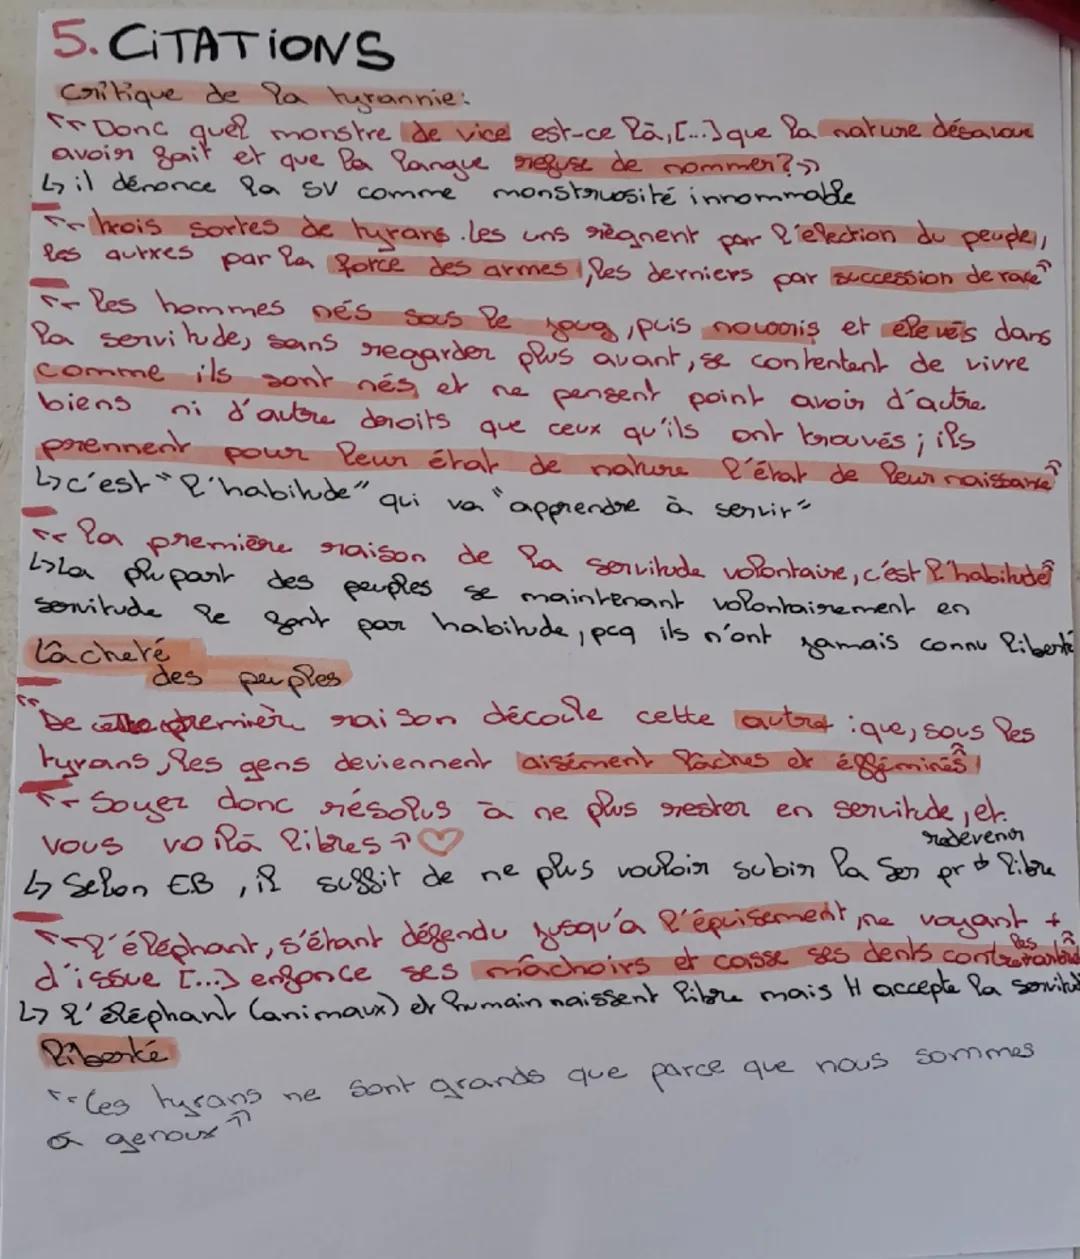 5. CiTATiONS
Critique de la tyrannie:
"Donc quel monstre de vice est-ce là, [...] que la nature désavoue
avoir fait et que la langue refuse de nommer?"
↳ il dénonce la SV comme monstruosité innommable
"trois sortes de tyrans. Les uns règnent par l'élection du peuple,
les autres par la force des armes, les derniers par succession de race"
"les hommes nés sous le joug, puis nourris et élevés dans
la servitude, sans regarder plus avant, se contentent de vivre
comme ils sont nés et ne pensent point avoir d'autre
biens ni d'autre droits que ceux qu'ils ont trouvés; ils
prennent pour leur état de nature l'état de leur naissance"
↳ c'est "l'habitude" qui va "apprendre à servir"
"la première raison de la servitude volontaire, c'est l'habitude"
↳ La plupart des peuples se maintenant volontairement en
servitude le font par habitude, pcq ils n'ont jamais connu liberté
Lâcheté
des peuples
"De cette première raison découle cette autre : que, sous les
tyrans, les gens deviennent aisément lâches et efféminés"
"Soyez donc résolus à ne plus rester en servitude, et
vous voilà libres" ♡
redevenir
↳ Selon EB, il suffit de ne plus vouloir subir la Ser pr libre
"l'éléphant, s'étant défendu jusqu'à l'épuisement, ne voyant +
d'issue [...] enfonce ses mâchoirs et casse ses dents contre les arbres"
↳ l'éléphant (animaux) et humain naissent libre mais H accepte la servitude
liberté
"Les tyrans ne sont grands que parce que nous sommes
à genoux"